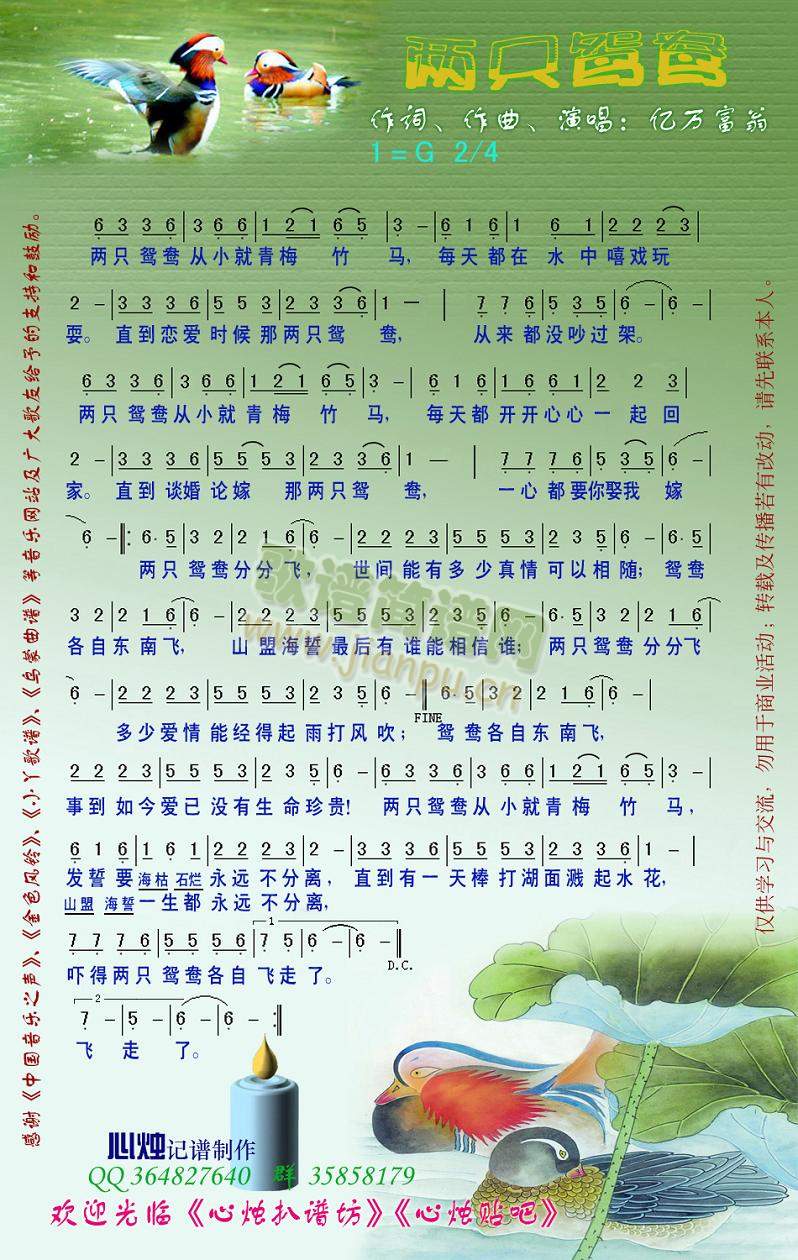 两只鸳鸯
作词、作曲、演唱：亿万富翁
1=G 2/4
6 3 3 6 | 3 6 6 | 1 2 1 6 5 | 3 - | 6 1 6 | 1 6 1 | 2 2 2 3 |
两只鸳鸯从小就青梅竹马，每天都在水中嘻戏玩
2 - | 3 3 3 6 | 5 5 3 | 2 3 3 6 | 1 — | 7 7 6 | 5 3 5 | 6 - | 6 - |
耍。直到恋爱时候那两只鸳鸯，从来都没吵过架。
6 3 3 6 | 3 6 6 | 1 2 1 6 5 | 3 - | 6 1 6 | 1 6 6 1 | 2 2 3 |
两只鸳鸯从小就青梅竹马，每天都开开心心一起回
2 - | 3 3 3 6 | 5 5 5 3 | 2 3 3 6 | 1 — | 7 7 7 6 | 5 3 5 | 6 - |
家。直到谈婚论嫁那两只鸳鸯，一心都要你娶我嫁
6 - |: 6·5 | 3 2 | 2 1 6 | 6 - | 2 2 2 3 | 5 5 5 3 | 5 5 5 | 6 - | 6·5 |
两只鸳鸯分分飞，世间能有多少真情可以相随；鸳鸯
3 2 | 2 1 6 | 6 - | 2 2 2 3 | 5 5 5 3 | 2 3 2 | 6 - | 6·5 | 3 2 | 2 1 6 |
各自东南飞，山盟海誓最后有谁能相信谁；两只鸳鸯分分飞
6 - | 2 2 2 3 | 5 5 5 3 | 2 3 5 | 6 - || 6·5 | 3 2 | 2 1 6 | 6 - |
FINE
多少爱情能经得起雨打风吹；鸳鸯各自东南飞，
2 2 2 3 | 5 5 5 3 | 5 5 5 | 6 - | 6 3 3 6 | 3 6 6 | 1 2 1 | 6 5 | 3 - |
事到如今爱已没有生命珍贵！两只鸳鸯从小就青梅竹马，
6 1 6 | 1 6 1 | 2 2 2 3 | 2 - | 3 3 3 6 | 5 5 5 3 | 2 2 2 3 | 1 - |
发誓要海枯石烂永远不分离，直到有一天棒打湖面溅起水花，
山盟海誓一生都永远不分离，
1
7 7 7 6 | 5 5 5 6 | 7 5 | 6 - | 6 - ||
D.C.
吓得两只鸳鸯各自飞走了。
2
7 - | 5 - | 6 - | 6 - :||
飞走了。
感谢《中国音乐之声》、《金色风铃》、《小丫歌谱》、《乌蒙曲谱》等音乐网站及广大歌友给予的支持和鼓励。
仅供学习与交流，勿用于商业活动；转载及传播若有改动，请先联系本人。
歌谱简谱网
www.jianpu.cn
心烛记谱制作
QQ 364827640 群 35858179
欢迎光临《心烛扒谱坊》《心烛贴吧》